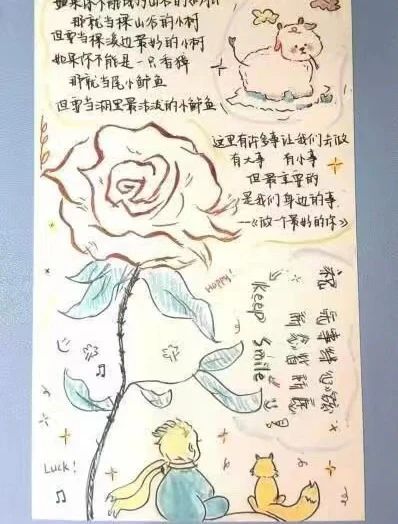 如果你不能成为山谷的
那就当棵山谷的小树
但要当棵溪边最好的小树
如果你不能是一只香獐
那就当尾小鲈鱼
但要当湖里最活泼的小鲈鱼
这里有许多事让我们去做
有大事 有小事
但最重要的
是我们身边的事
——《做一个最好的你》
Happy!
祝 事
所念皆所愿
Keep smile
Luck!